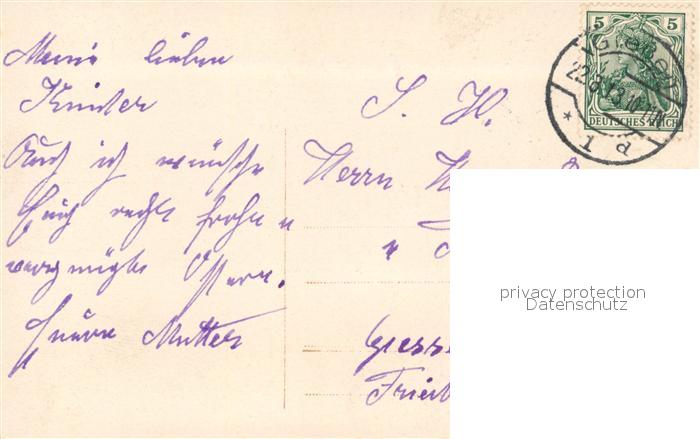 Meine lieben
Kinder
Auch ich wünsche
Euch recht frohe u
vergnügte Ostern.
Eure Mutter
S. H.
Herrn
Giess
Fried
5 5
DEUTSCHES REICH
22.3.13
* 1 d
privacy protection
Datenschutz